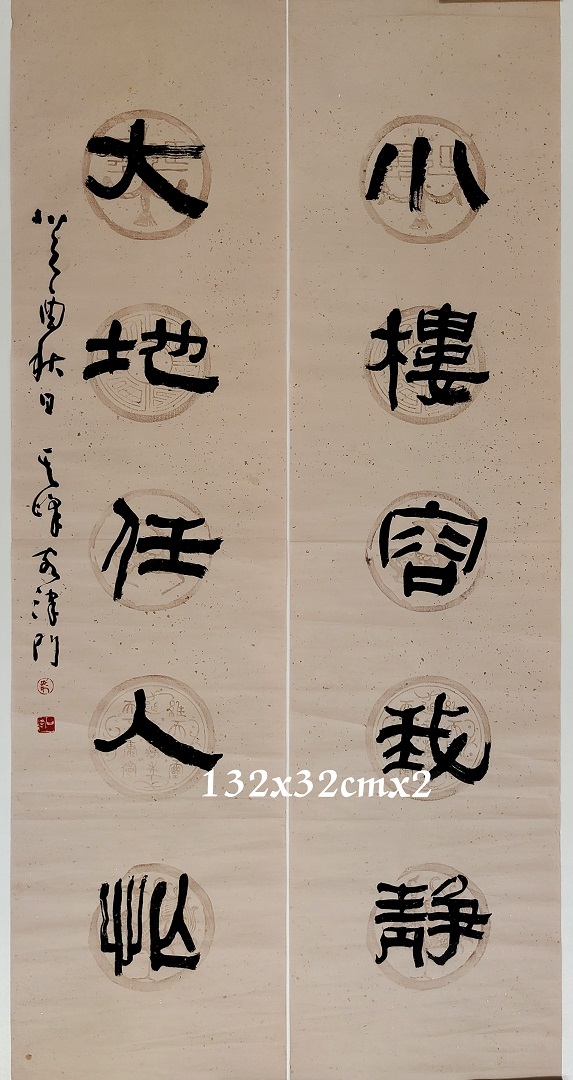 小樓容我靜
大地任人忙
癸酉秋日 其峰客津門
132x32cmx2